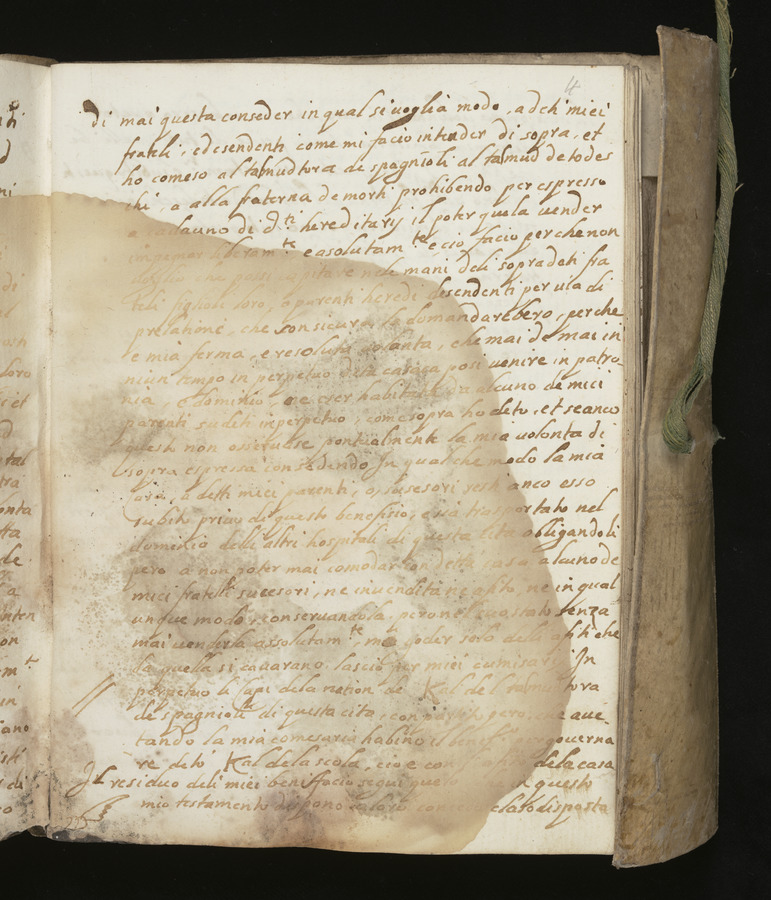 4
di mai questa conseder in qual si voglia modo, a deti miei
fratelli, e desendenti come mi facio intender di sopra, et
ho comeso al talmud tora de spagnioli al talmud de todes
chi, a alla fraterna de morti prohibendo per espresso
a cadauno di d.ti hereditarij il poter quela vender
impegnar liberam.te e asolutam.te e cio facio perche non
voglio capitare nele mani deli sopradeti fra
teli figlioli loro, o parenti heredi desendenti per via di
prelatione, che son sicuro la domandarebero, perche
e mia ferma, e resoluta volonta, che mai de mai in
niun tempo in perpetuo deta casaca posi venire in patro-
nia, o dominio, ne eser habitata da alcuno de miei
parenti sudeti in perpetuo, come sopra ho deto, et se anco
questi non osservase pontualmente la mia volonta di
sopra espressa consedendo In qual che modo la mia
a detti miei parenti, o, susesori resti anco esso
subito privo di questo benefisio, e sia trasportato nel
dominio delli altri hospitali di questa cita obligandoli
pero a non poter mai comodar con detta casa alcuno de
miei fratelli sucesori, ne in vendita ne afito, ne in qual
unque modo, conservandola, pero nel suo stato senza
mai venderla assolutam.te, ma goder solo delli afiti che
da quella si cavarano lascio per miei comisarij In
perpetuo li capi dela nation de Kal del talmu tora
de spagnioli di questa cita, con pato pero, che ave
tando la mia comesaria habino il benefi per governa
re deto Kal dela scola, cio e con dela casa
Il residuo deli miei beni facio segui quelo in questo
mio testamento dispono disposta